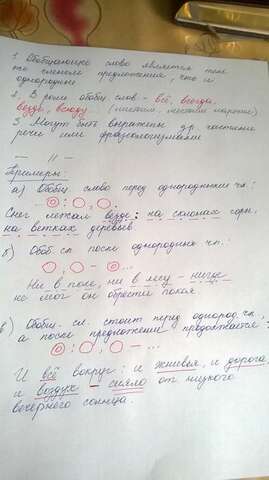 1. Обобщающее слово является тем
же членом предложения, что и
однородные
2. В роли обобщ. слов - всё, всегда,
везде, всюду...
3. Могут быть выражены др. частями
речи или фразеологизмами
— // —
Примеры:
а) Обобщ. слово перед однородными чл.:
Снег лежал везде: на склонах горы,
на ветках деревьев.
б) Обоб. сл. после однородных чл.:
Ни в поле, ни в лесу - нигде
не мог он обрести покоя.
в) Обобщ. сл. стоит перед однород. чл.,
а после предложение продолжается:
И всё вокруг: и жнивьё, и дорога,
и воздух - сияло от низкого
вечернего солнца.